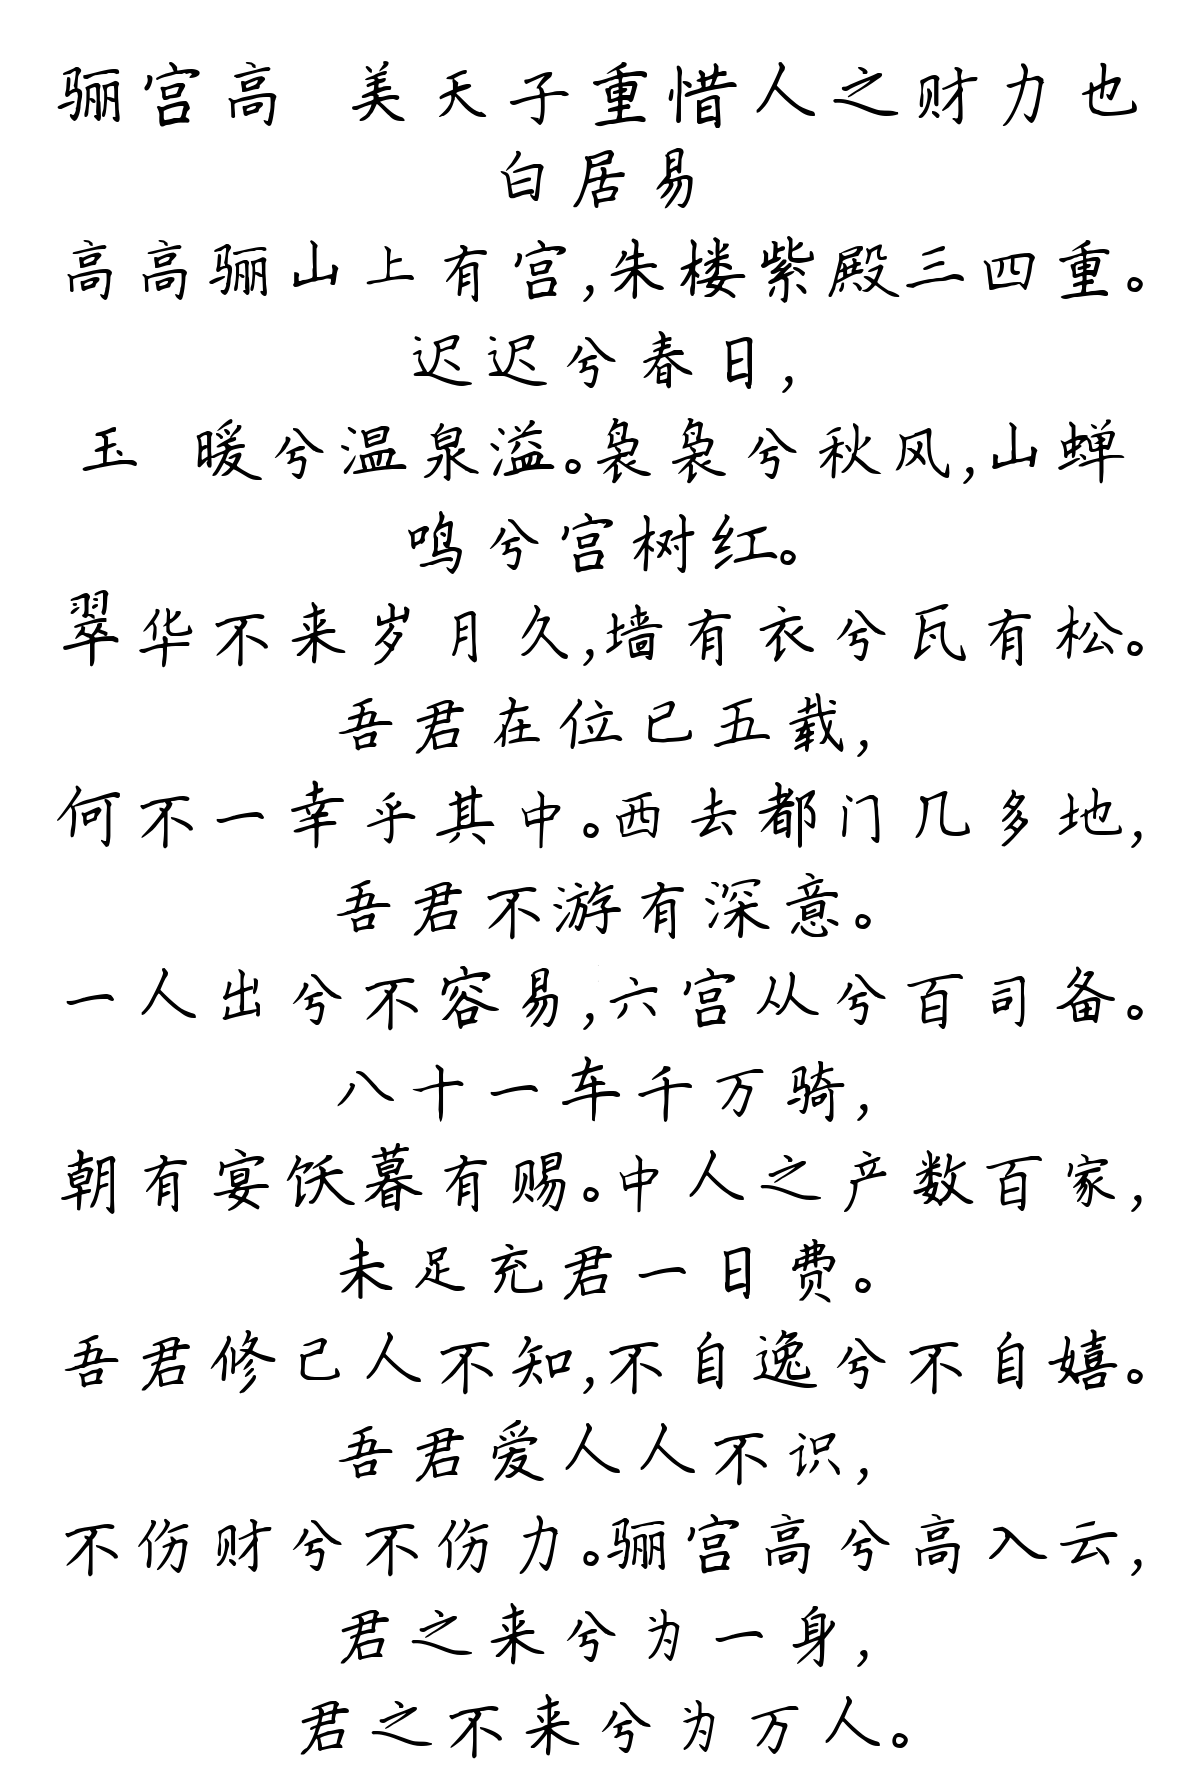 骊宫高 美天子重惜人之财力也
白居易
高高骊山上有宫,朱楼紫殿三四重。
迟迟兮春日,
玉 暖兮温泉溢。袅袅兮秋风,山蝉
鸣兮宫树红。
翠华不来岁月久,墙有衣兮瓦有松。
吾君在位已五载,
何不一幸乎其中。西去都门几多地,
吾君不游有深意。
一人出兮不容易,六宫从兮百司备。
八十一车千万骑,
朝有宴饫暮有赐。中人之产数百家,
未足充君一日费。
吾君修己人不知,不自逸兮不自嬉。
吾君爱人人不识,
不伤财兮不伤力。骊宫高兮高入云,
君之来兮为一身,
君之不来兮为万人。